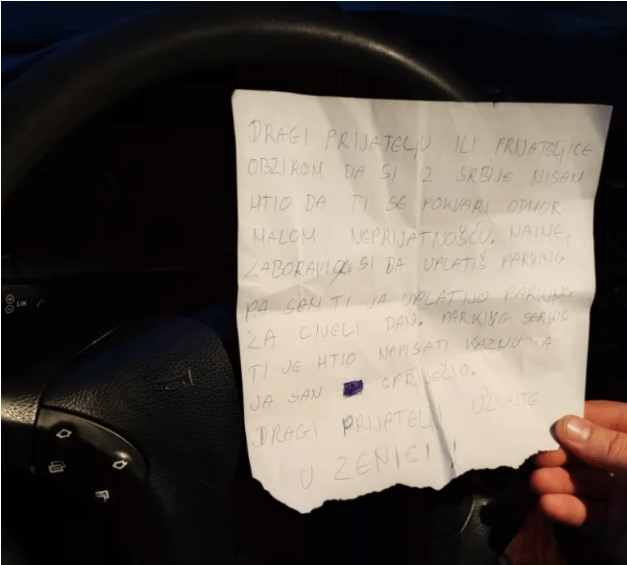 DRAGI PRIJATELJU ILI PRIJATELJICE
OBZIROM DA SI Z SRBIJE NISAM
HTIO DA TI SE POKVARI ODMOR
MALOM NEPRIJATNOŠĆU. NAIME,
ZABORAVIO SI DA UPLATIŠ PARKING
PA SAM TI JA UPLATIJO PARKING
ZA CIJELI DAN. PARKING SERVIS
TI JE HTIO NAPISATI KAZNU A
JA SAN SPRIJEČIO.
DRAGI PRIJATELJ UŽIVAJTE
U ZENICI!